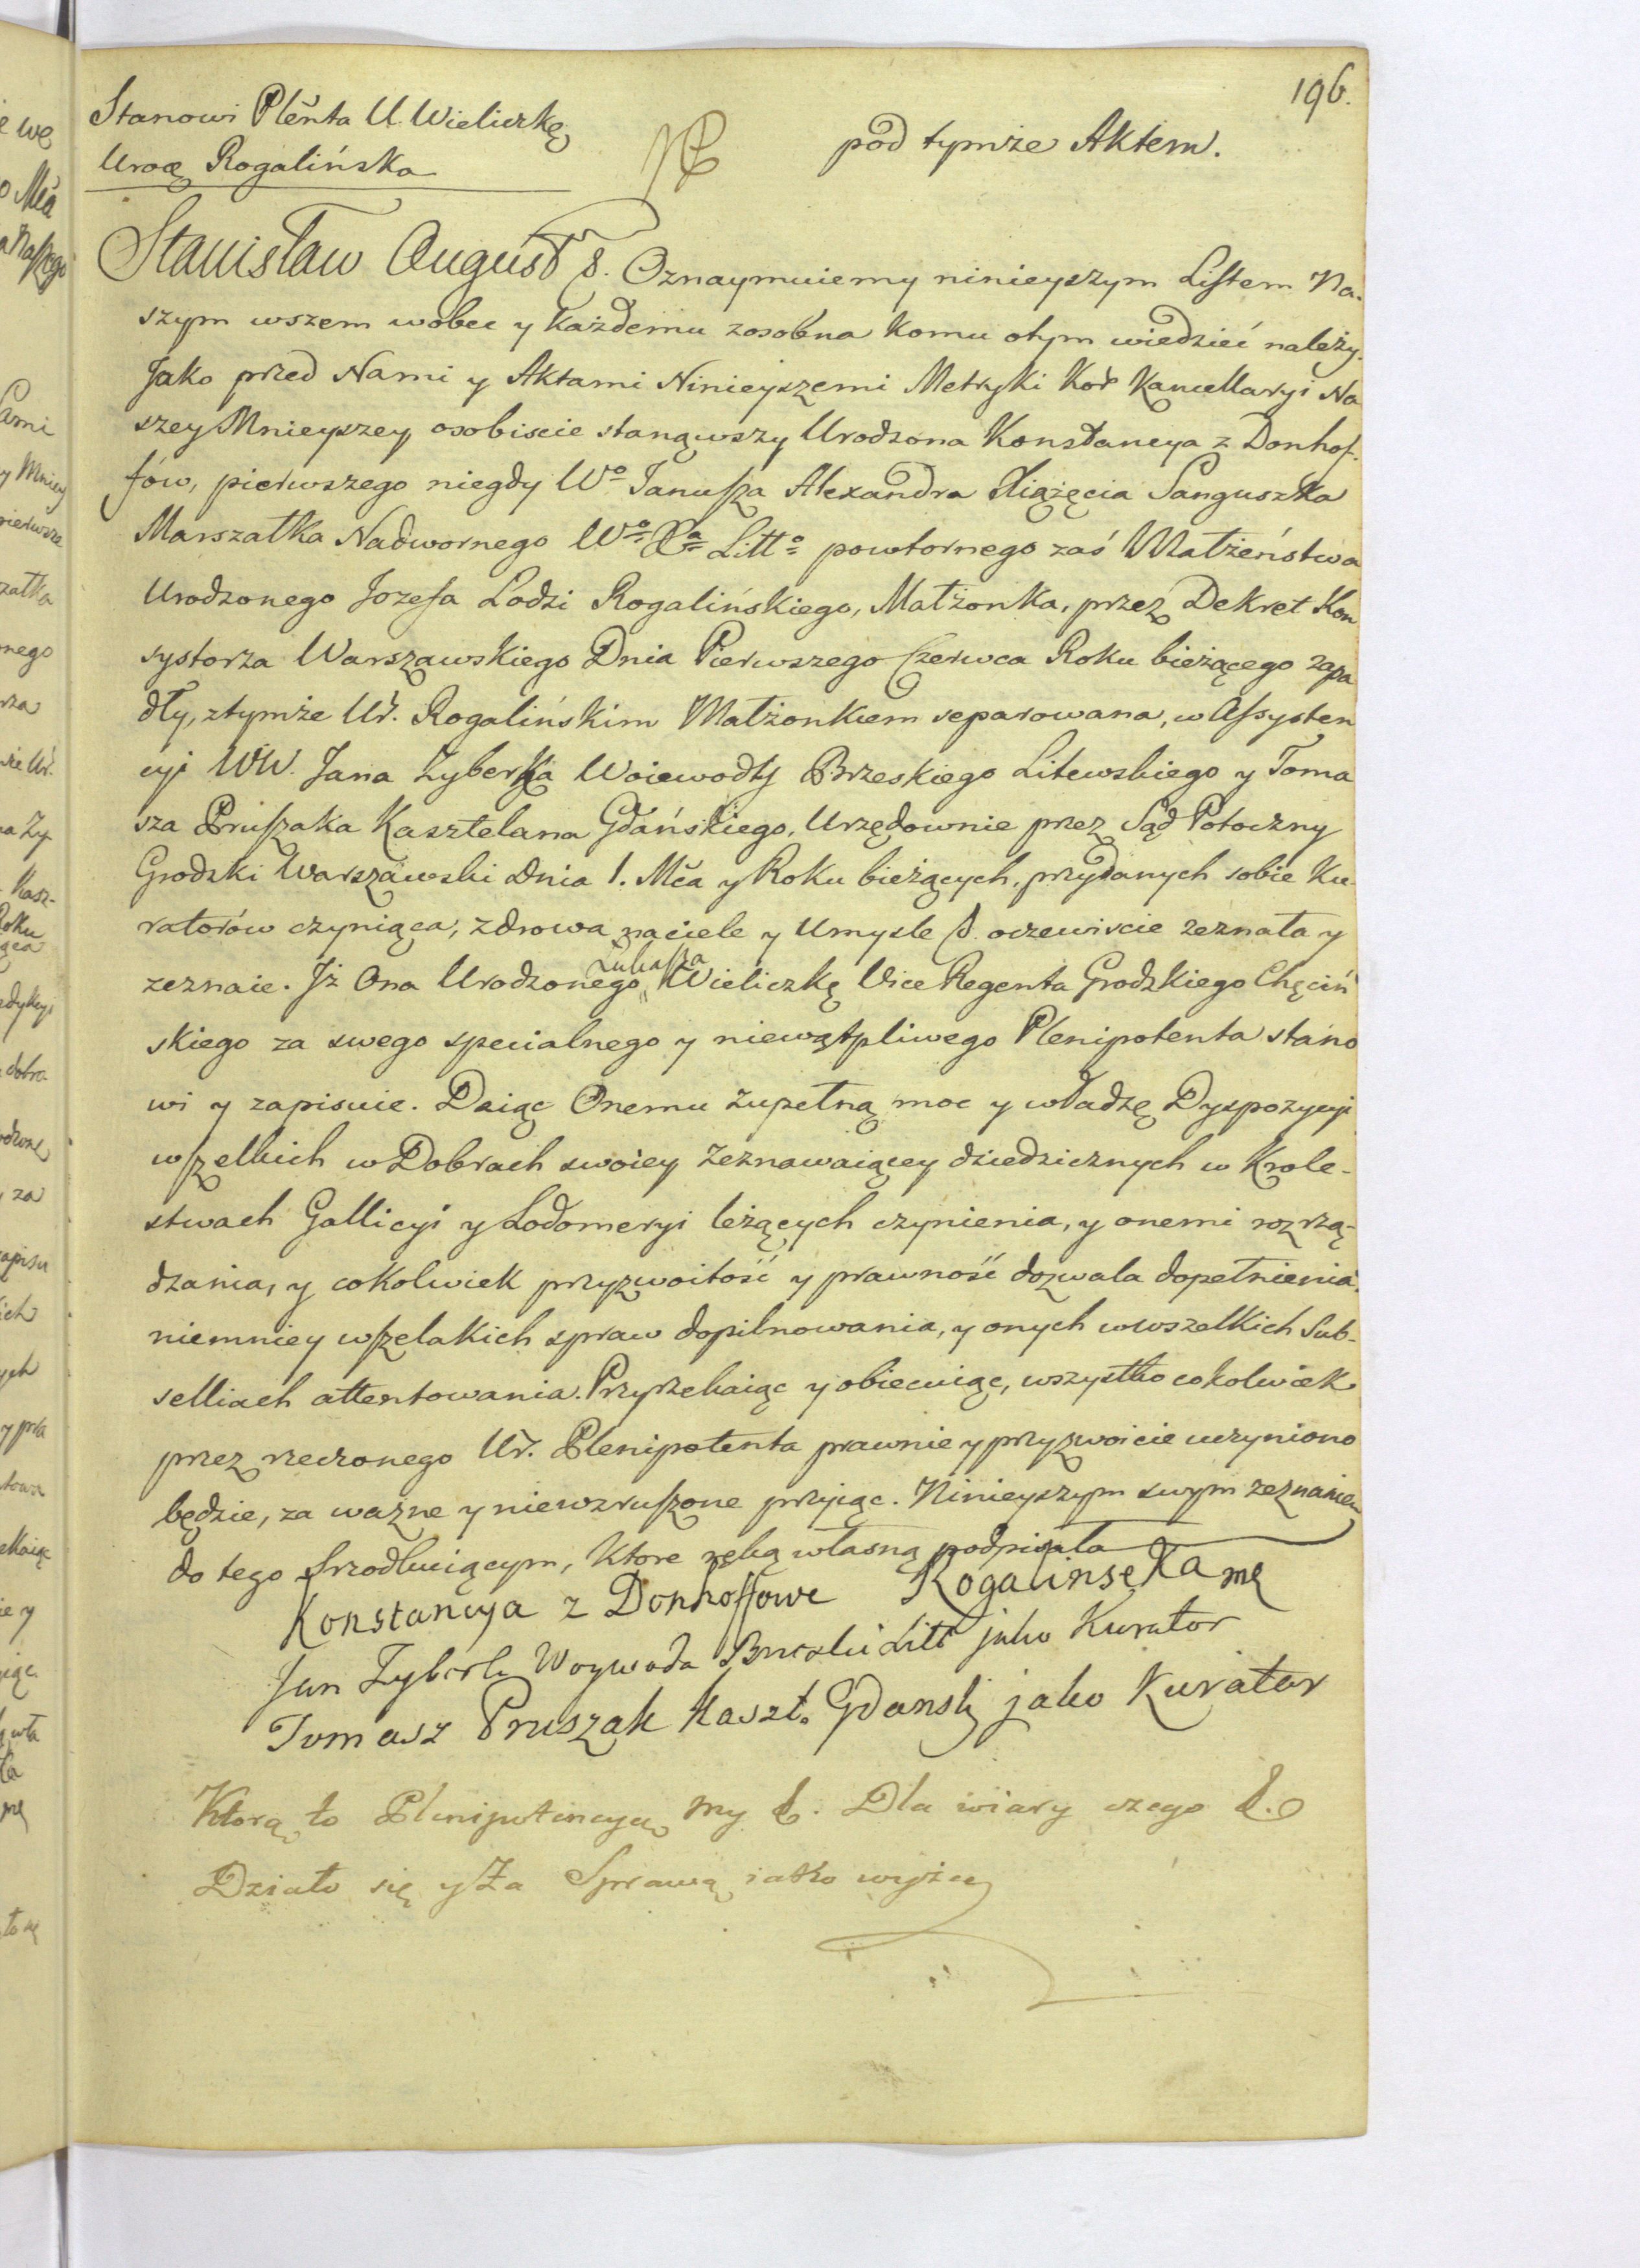 196.
Stanowi Pleñta U. Wieliczkę
Uroą Rogalińska
pod tymże Aktem.
Stanisław August &. Oznaymuiemy ninieyszym Listem Na-
szym wszem wobec y każdemu zosobna komu otym wiedzieć należy.
Jako przed Nami y Aktami Ninieyszemi Metryki Kor Kancellaryi Na
szey Mnieyszey osobiscie stanąwszy Urodzona Konstancya z Donhof-
fów, pierwszego niegdy Wo Janusza Alexandra Xiążęcia Sanguszka
Marszałka Nadwornego Wo Xa Litto powtornego zaś Małżeństwa
Urodzonego Jozefa Lodzi Rogalińskiego, Małżonka, przez Dekret Kon
systorza Warszawskiego Dnia Pierwszego Czerwca Roku bieżącego zapa
dły, ztymże Ur. Rogalińskim Małżonkiem separowana, w Assysten
cyi WW. Jana Zyberka Woiewody Brzeskiego Litewskiego y Toma
sza Pruszaka Kasztelana Gdańskiego, Urzędownie przez Sąd Potoczny
Grodzki Warszawski dnia 1. Mca y Roku bieżących, przydanych sobie Ku-
ratorów czyniąca, zdrowa na ciele y Umysle &. oczewiscie zeznała y
zeznaie. Jż Ona Urodzonego Łukasza Wieliczkę Vice Regenta Grodzkiego Chęciń
skiego za swego specialnego y niewątpliwego Plenipotenta stano
wi y zapisuie. Daiąc Onemu zupełną moc y władzę Dyspozycyi
wszelkich w Dobrach swoiey Zeznawaiącey dziedzicznych w Krole-
stwach Gallicyi y Lodomeryi leżących czynienia, y onemi rozrzą-
dzania, y cokolwiek przyzwoitość y prawność dozwala dopełnienia,
niemniey wszelakich spraw dopilnowania, y onych wwszelkich Sub-
selliach attentowania. Przyrzekaiąc y obiecuiąc, wszystko cokolwiek
przez rzeczonego Ur. Plenipotenta prawnie y przyzwoicie uczyniono
będzie, za ważne y niewzruszone przyiąc. Ninieyszym swym zeznaniem
do tego srzodkuiącym, które ręką własną podpisała
Konstancya z Donhoffowe Rogalinseka mę
Jan Zyberk Woywoda Brzeski Litt jako Kurator
Tomasz Pruszak Kaszt. Gdansk jako Kurator
Ktorą to Plenipotencyą My &. Dla wiary czego &.
Działo się y Za Sprawą iako wyżey